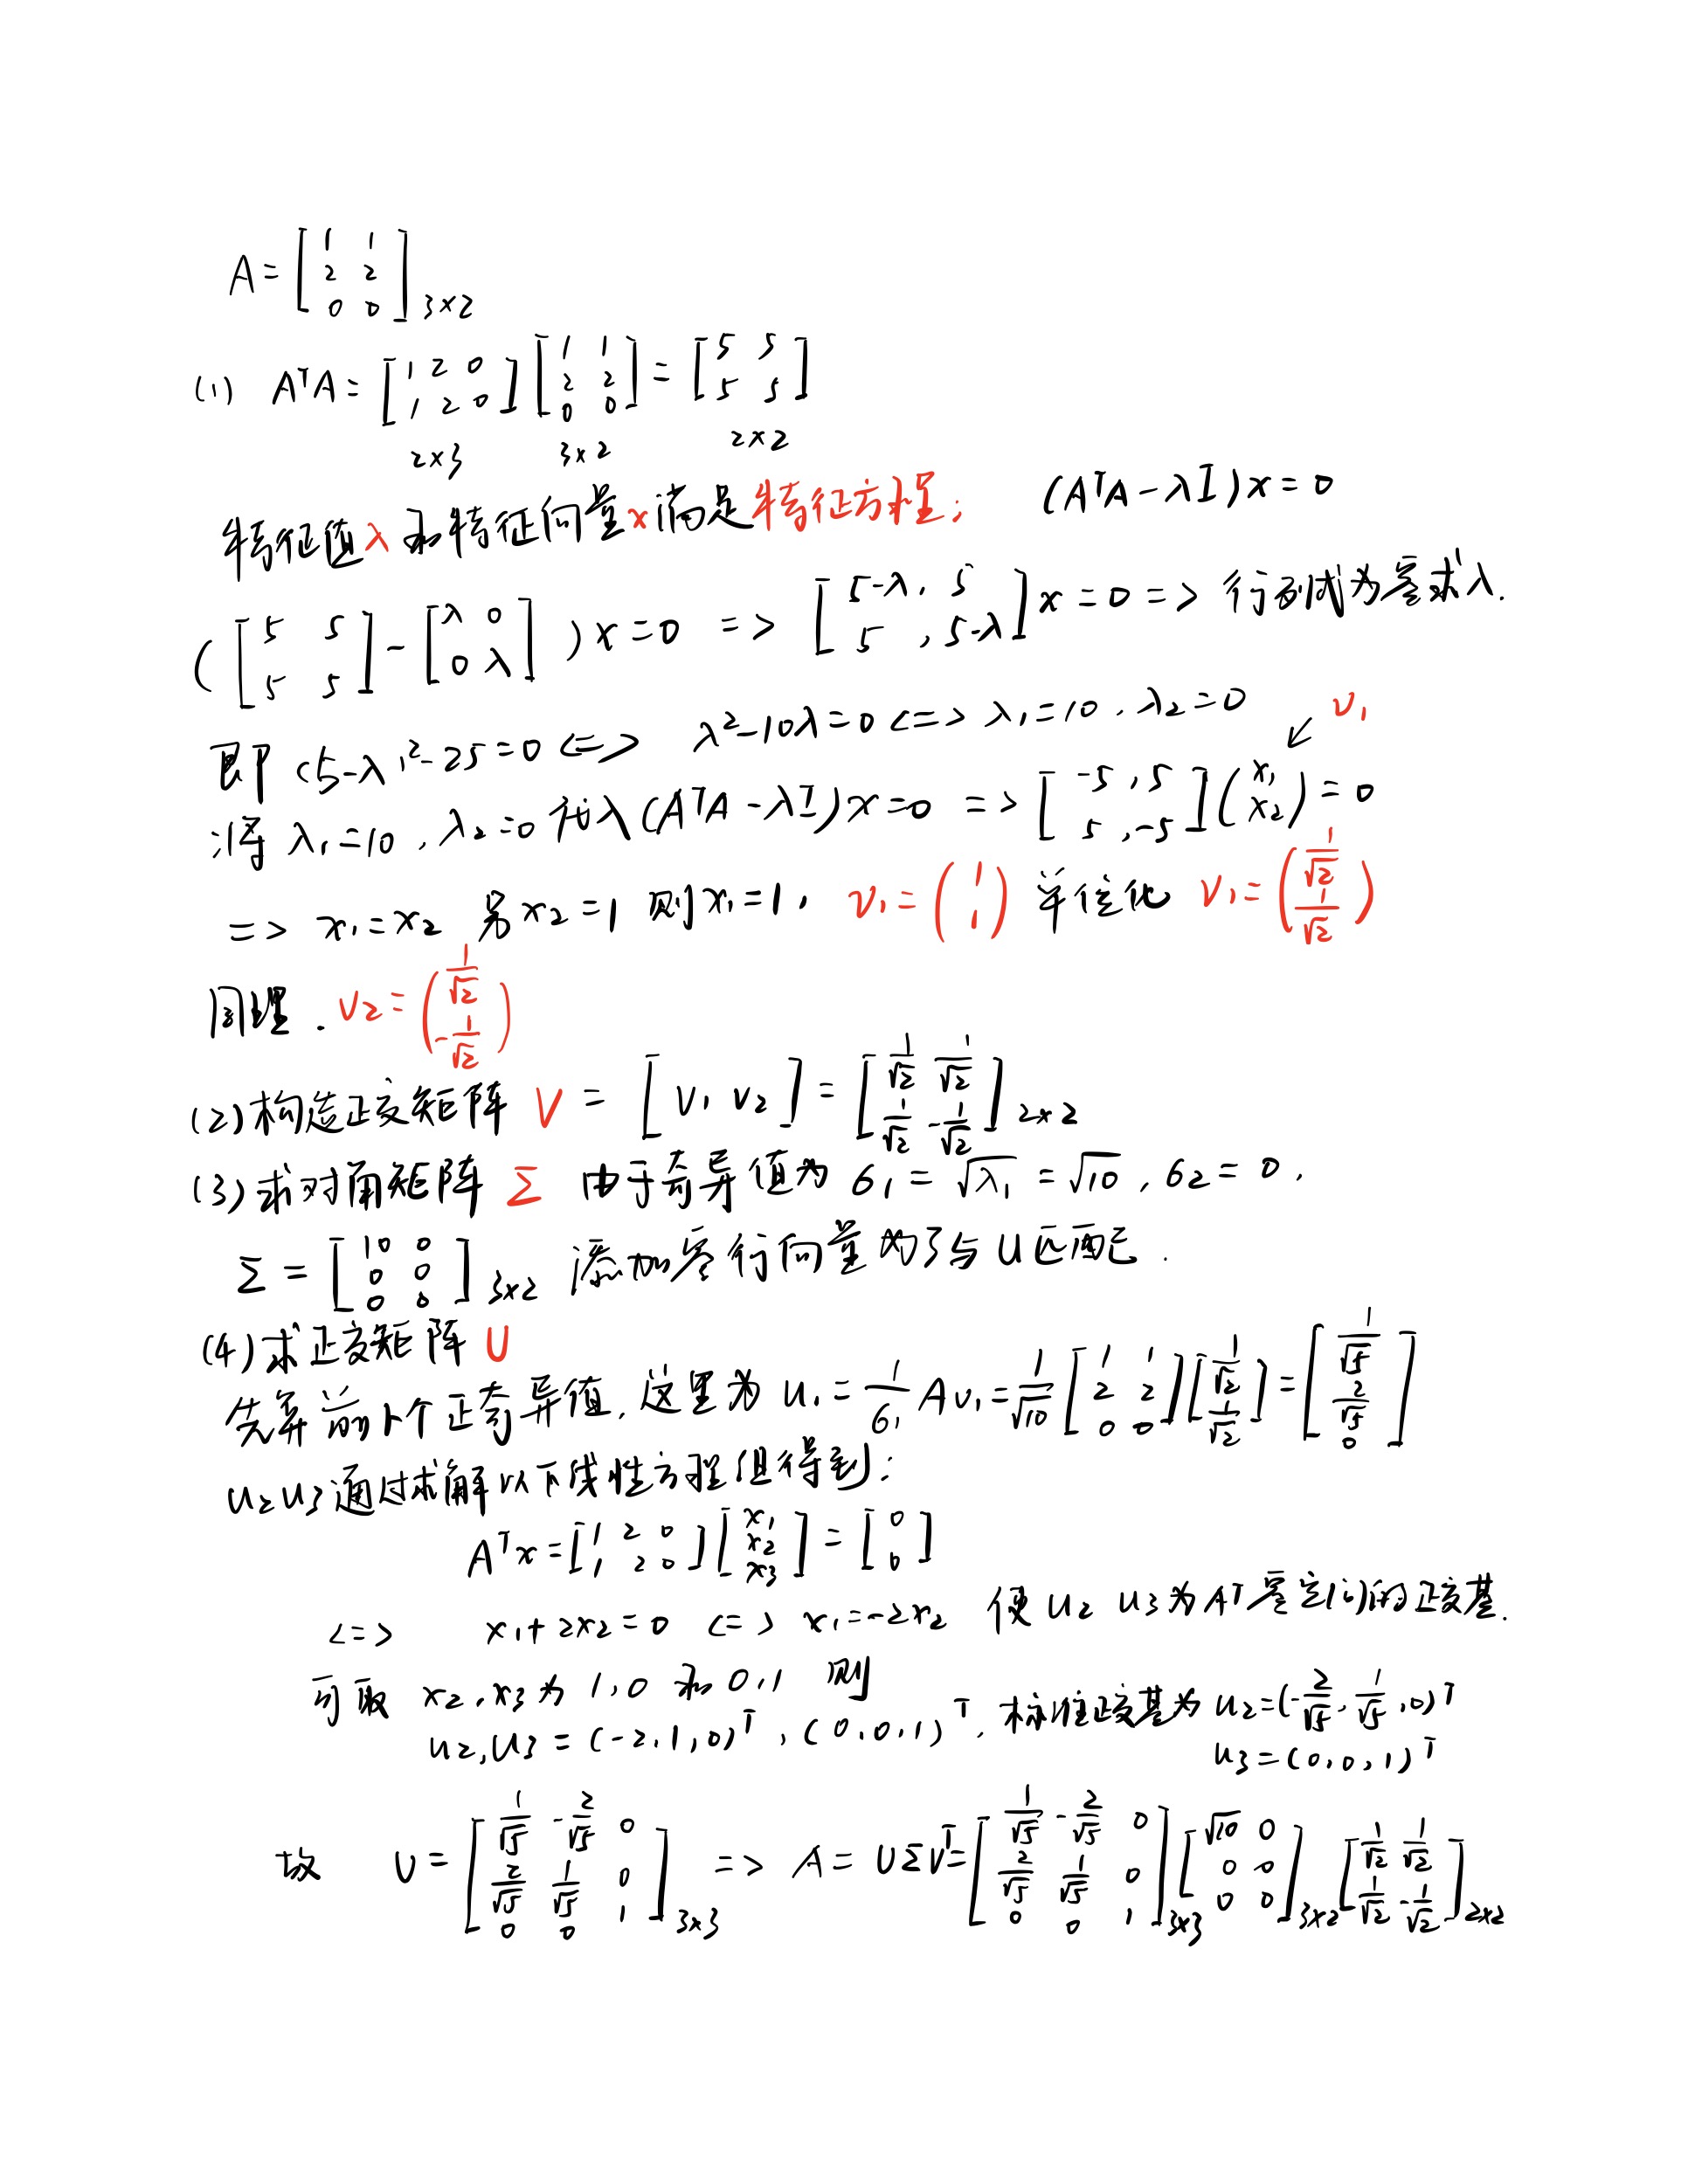 A = [1 1; 2 2; 0 0]3×2
(1) AᵀA = [1 2 0; 1 2 0]2×3 [1 1; 2 2; 0 0]3×2 = [5 5; 5 5]2×2
特征值λ和特征向量x满足特征方程; (AᵀA-λI)x=0
([5 5; 5 5] - [λ 0; 0 λ])x=0 => [5-λ, 5; 5, 5-λ]x=0 => 行列式为零求λ.
即 (5-λ)²-25=0 <=> λ²-10λ=0 <=> λ₁=10, λ₂=0 v₁
将 λ₁=10, λ₂=0 代入(AᵀA-λI)x=0 => [-5, 5; 5, -5](x₁; x₂)=0
=> x₁=x₂ 另x₂=1 则x₁=1, v₁=(1; 1) 单位化 v₁=(1/√2; 1/√2)
同理. v₂=(1/√2; -1/√2)
(2)构造正交矩阵 V = [v₁ v₂] = [1/√2 1/√2; 1/√2 -1/√2]2×2
(3)求对角矩阵 Σ 由于奇异值为 6₁=√λ₁=√10, 6₂=0,
Σ = [10 0; 0 0; 0 0]3×2 添加零行向量为了与U匹配.
(4)求正交矩阵 U
先算前1个正奇异值, 这里为 u₁ = 1/6₁ A v₁ = 1/√10 [1 1; 2 2; 0 0][1/√2; 1/√2] = [1/√5; 2/√5; 0]
u₂u₃通过求解以下线性方程组得到:
Aᵀx = [1 2 0; 1 2 0][x₁; x₂; x₃] = [0; 0]
<=> x₁+2x₂=0 <=> x₁=-2x₂ 使u₂ u₃为Aᵀ零空间的正交基.
可取 x₂,x₃为 1,0 和 0,1 则
u₂,u₃ = (-2,1,0)ᵀ, (0,0,1)ᵀ, 标准正交基为 u₂=(-2/√5, 1/√5, 0)ᵀ
u₃=(0,0,1)ᵀ
故 U = [1/√5 -2/√5 0; 2/√5 1/√5 0; 0 0 1]3×3 => A = UΣVᵀ = [1/√5 -2/√5 0; 2/√5 1/√5 0; 0 0 1]3×3 [√10 0; 0 0; 0 0]3×2 [1/√2 1/√2; 1/√2 -1/√2]2×2